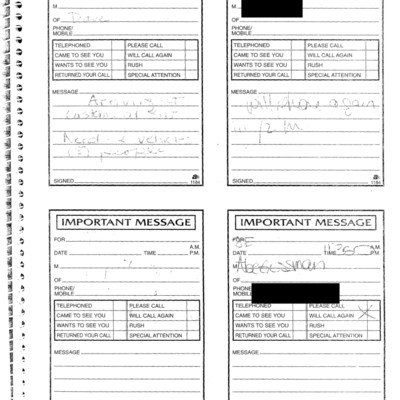 M
OF
PHONE/
MOBILE
TELEPHONED PLEASE CALL
CAME TO SEE YOU WILL CALL AGAIN
WANTS TO SEE YOU RUSH
RETURNED YOUR CALL SPECIAL ATTENTION
MESSAGE
SIGNED 1184
M
OF
PHONE/
MOBILE
TELEPHONED PLEASE CALL
CAME TO SEE YOU WILL CALL AGAIN
WANTS TO SEE YOU RUSH
RETURNED YOUR CALL SPECIAL ATTENTION
MESSAGE will phone again
SIGNED 1184
IMPORTANT MESSAGE
FOR
A.M.
DATE TIME P.M.
M
OF
PHONE/
MOBILE
TELEPHONED PLEASE CALL
CAME TO SEE YOU WILL CALL AGAIN
WANTS TO SEE YOU RUSH
RETURNED YOUR CALL SPECIAL ATTENTION
MESSAGE
IMPORTANT MESSAGE
FOR JE
A.M.
DATE TIME P.M.
M
OF
PHONE/
MOBILE
TELEPHONED PLEASE CALL
CAME TO SEE YOU WILL CALL AGAIN X
WANTS TO SEE YOU RUSH
RETURNED YOUR CALL SPECIAL ATTENTION
MESSAGE